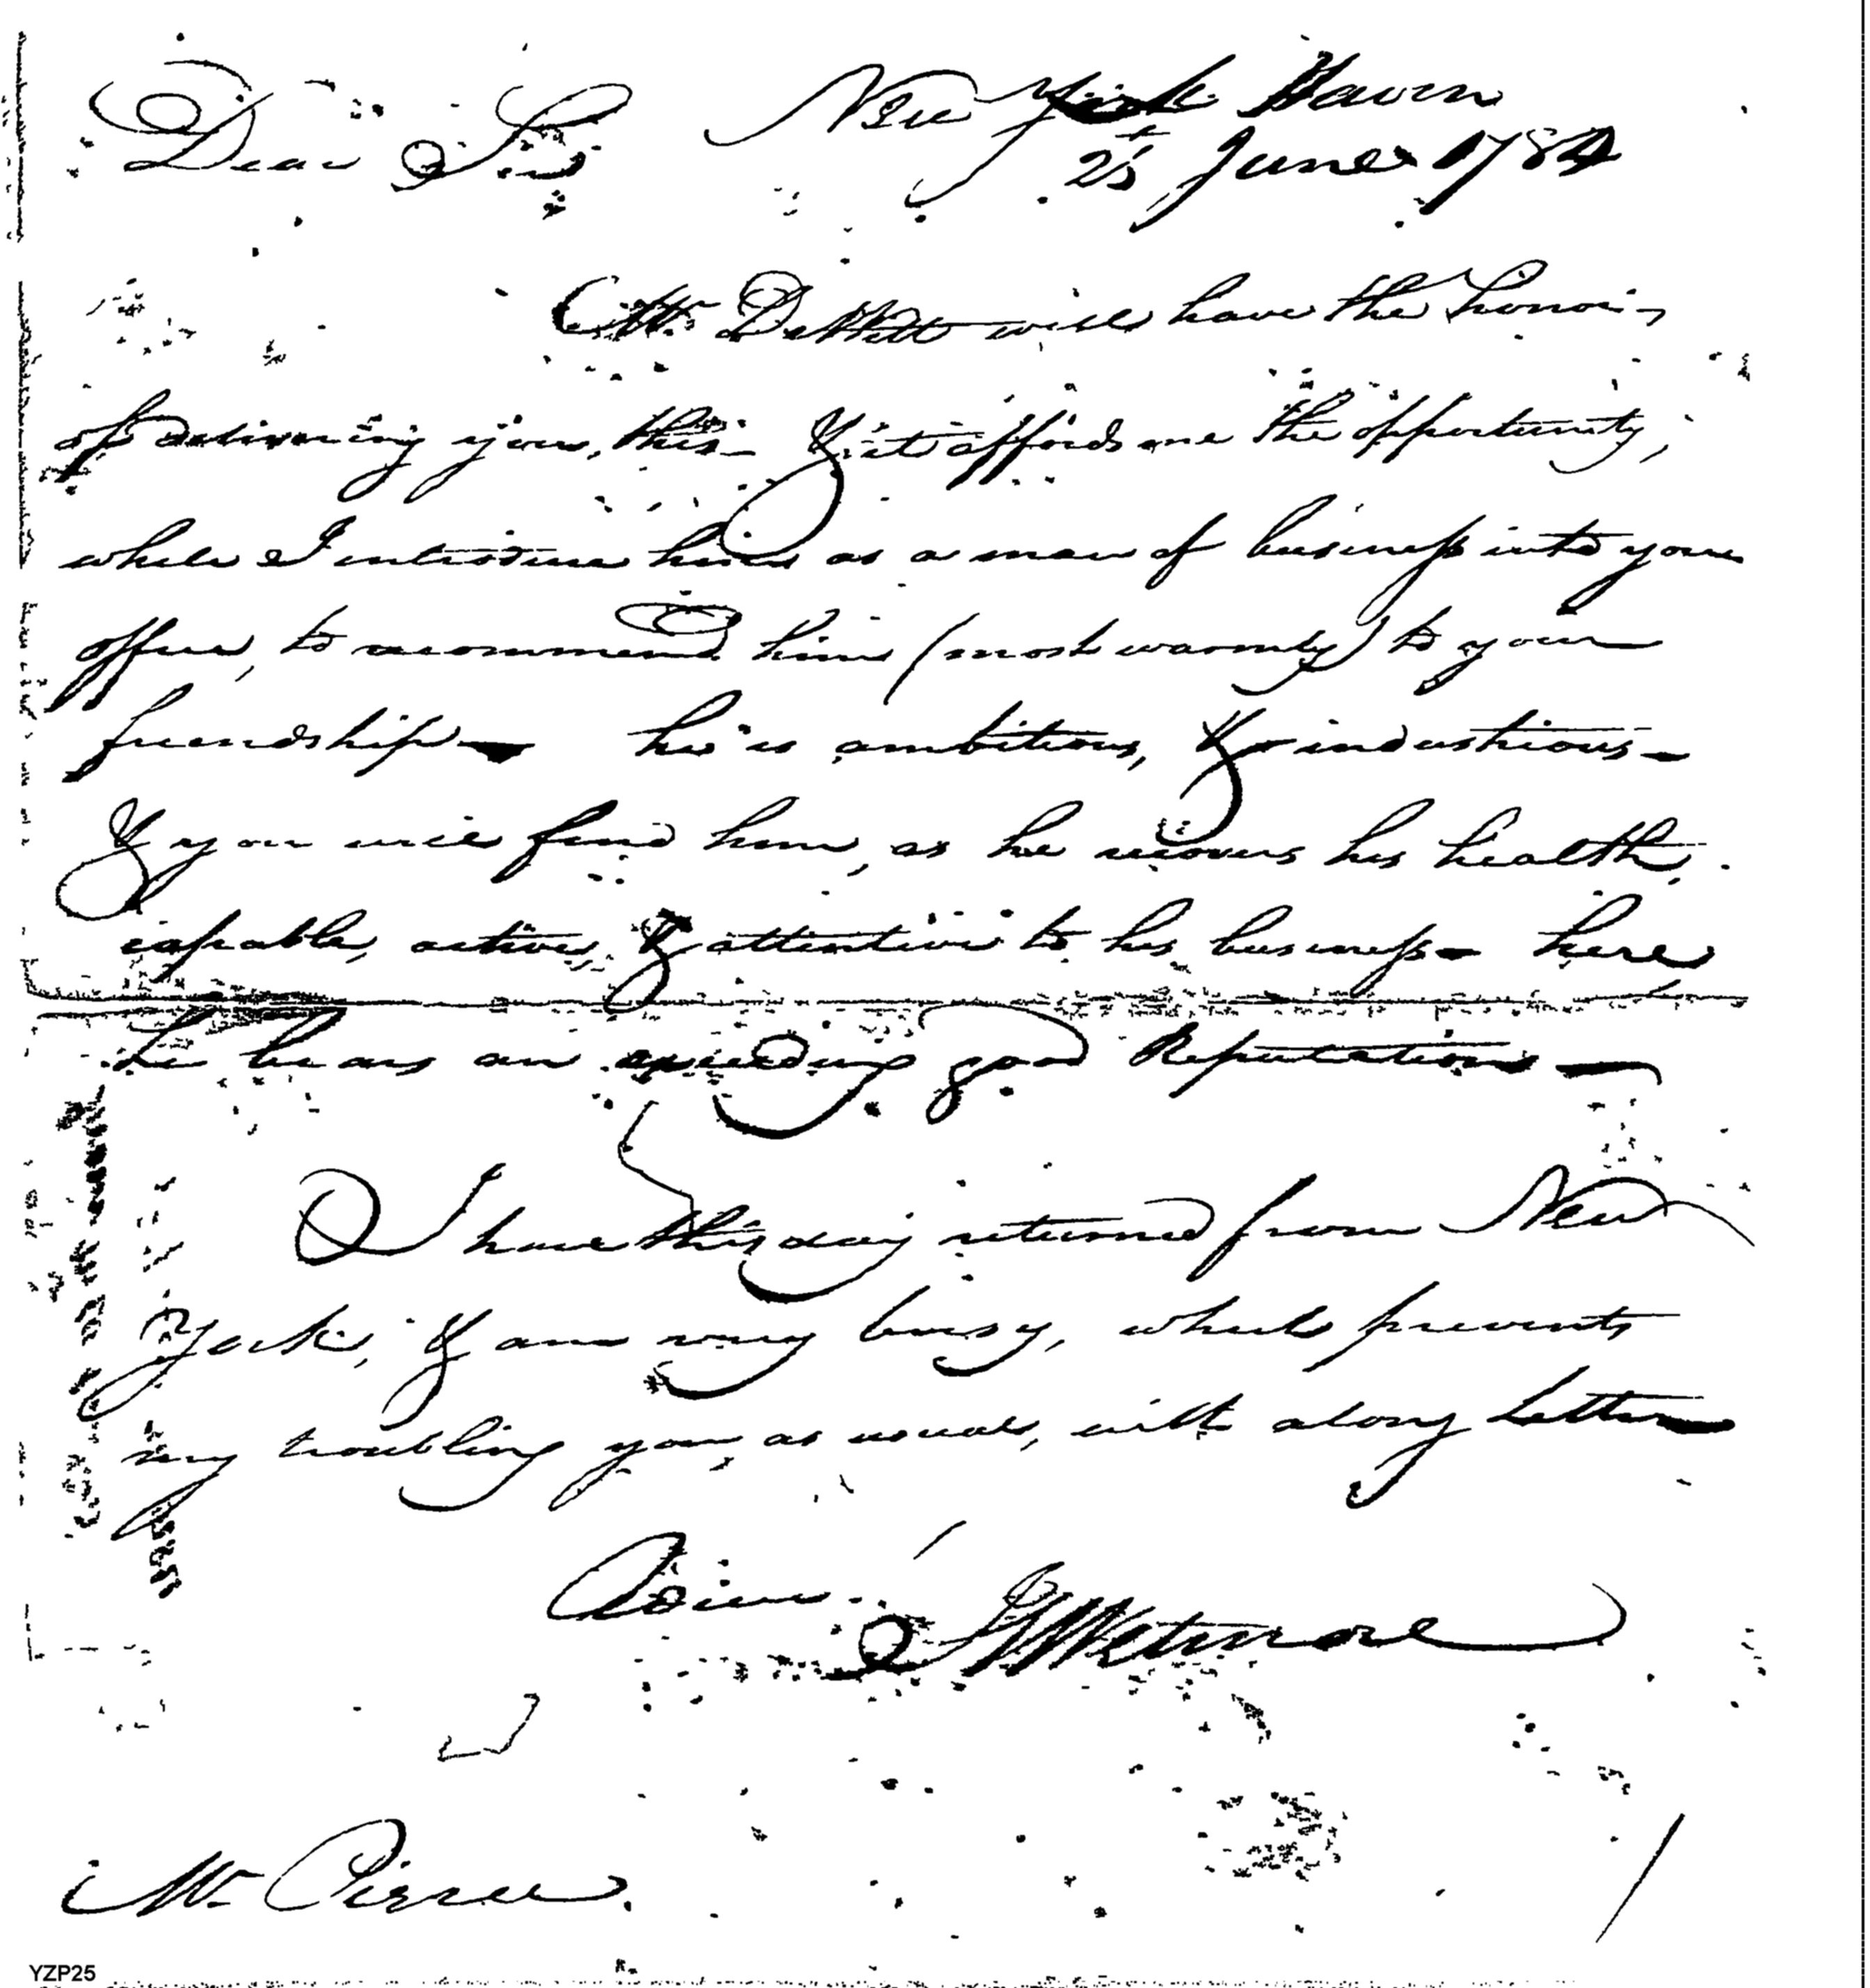 Dear Sir New York Haven
25t June 1784
Mr DeWitt will have the honor
of delivering you, this— & it affords me the opportunity,
while I introduce him as a man of business into your
office, to recommend him (most warmly) to your
friendship— he is ambitious, & industrious—
& you will find him, as he recovers his health,
capable, active, & attentive to his business— here
he bears an exceeding good Reputation—
I have this day returned from New
York, & am very busy, which prevents
my troubling you, as usual, with a long Letter
Adieu.
Wetmore
Mr Pierce.
YZP25